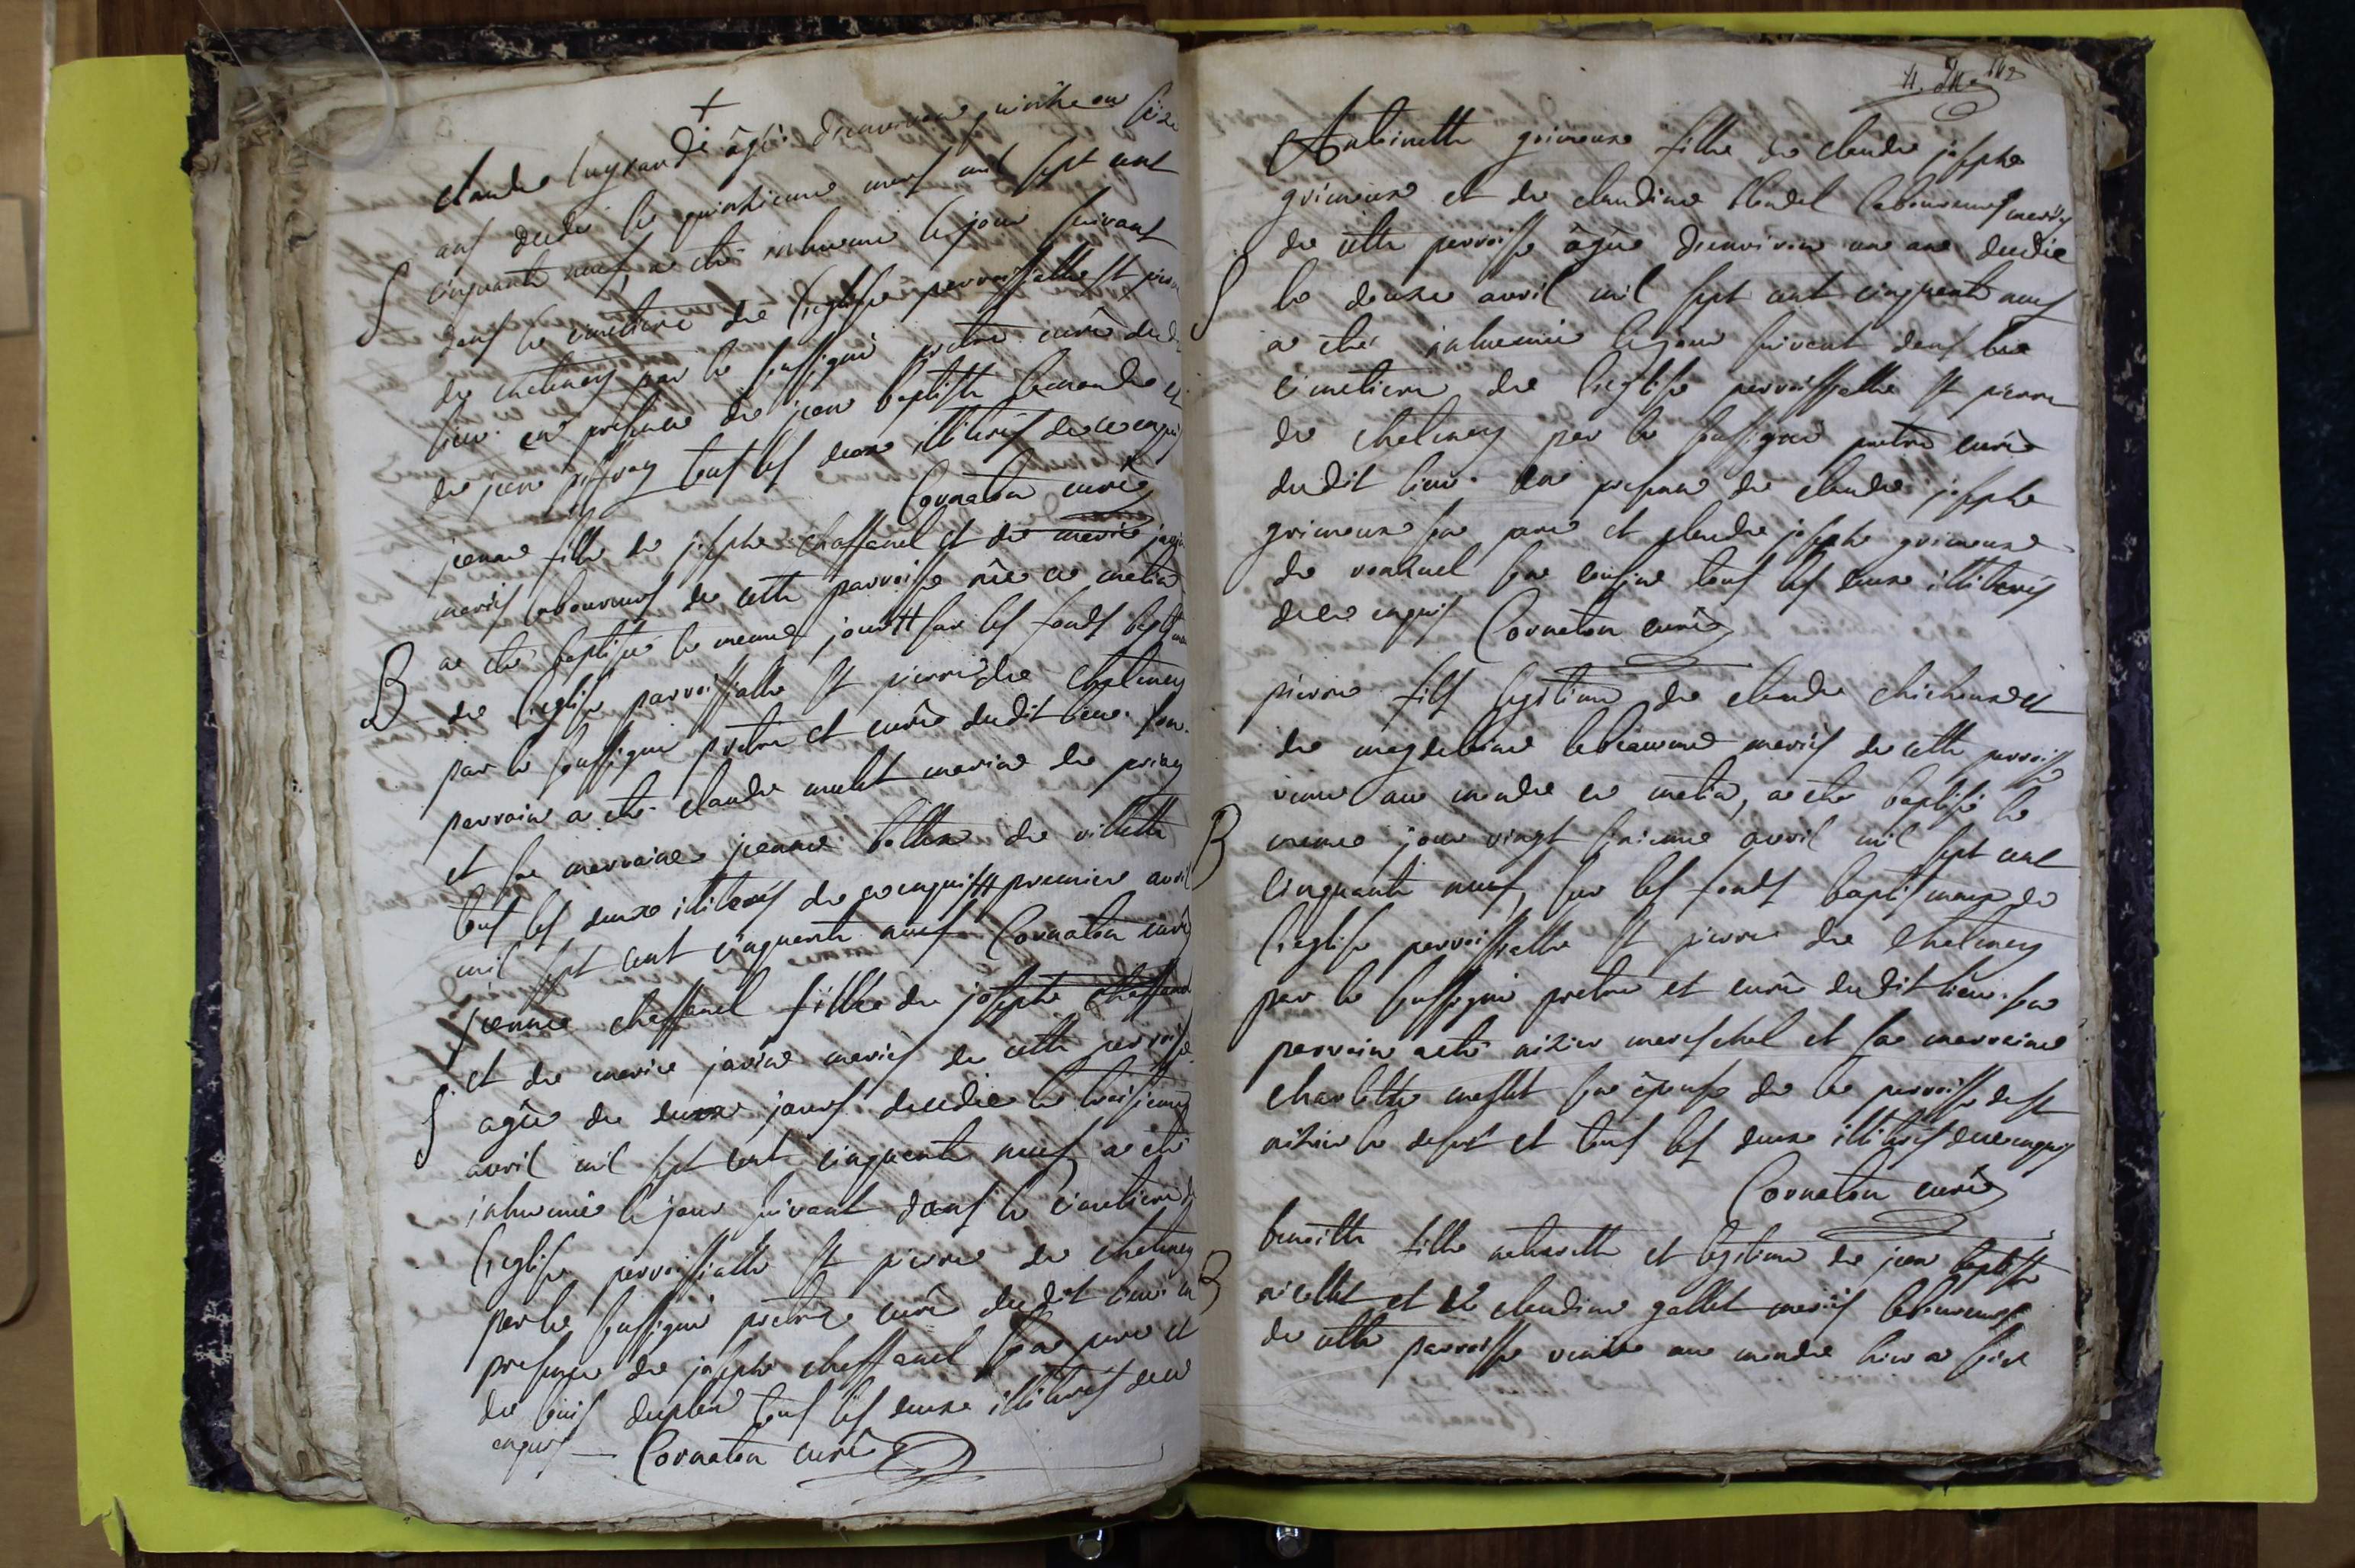 claude âgé d'environ quinze ou seize
ans decedé le quinzieme mars mil sept cent
S cinquante neuf, a eté inhumé le jour suivant
dans le cimetiere de l'eglise parroissialle St pierre
de chetenay par le soussigné pretre curé dudit
lieu. en presence de jean baptiste et
de jean tous les deux illiterés de ce enquis
Cornaton curé
jeanne fille de josephe chaffanel et de marie javin
mariés laboureurs de cette parroisse née ce matin
B a eté baptisée le meme jour # sur les fonds baptismaux
de l'eglise parroissialle St pierre de chetenay
par le soussigné pretre et curé dudit lieu. son
parrain a eté claude marin de
et sa marraine jeanne de villette
tous les deux illiterés de ce enquis # premier avril
mil sept cent cinquante neuf Cornaton curé
jeanne chaffanel fille de josephe chaffanel
et de marie javin mariés de cette parroisse
S agée de deux jours decedée le troisieme
avril mil sept cent cinquante neuf a eté
inhumée le jour suivant dans le cimetiere de
l'eglise parroissialle St pierre de chetenay
par le soussigné pretre curé dudit lieu en
presence de josephe chaffanel son pere et
de louis tous les deux illiterés de ce
enquis — Cornaton curé
Antoinette grimoux fille de claude josephe
grimoux et de claudine blondel laboureurs mariés
de cette parroisse âgée d'environ un an decedée
S le deux avril mil sept cent cinquante neuf
a eté inhumée le jour suivant dans le
cimetiere de l'eglise parroissialle St pierre
de chetenay par le soussigné pretre curé
dudit lieu. en presence de claude josephe
grimoux son pere et claude josephe grimoux
de son cousin tous les deux illiterés
de ce enquis Cornaton curé
pierre fils legitime de claude et
de magdelaine mariés de cette parroisse
venu au monde ce matin, a eté baptisé le
B meme jour vingt sixieme avril mil sept cent
cinquante neuf, sur les fonds baptismaux de
l'eglise parroissialle St pierre de chetenay
par le soussigné pretre et curé dudit lieu. son
parrain a eté nizier mareschal et sa marraine
charlotte son épouse de la parroisse de St
nizier le desert et tous les deux illiterés de ce enquis
Cornaton curé
benoitte fille naturelle et legitime de jean baptiste
B et de claudine gallet mariés laboureurs
de cette parroisse venue au monde hier a